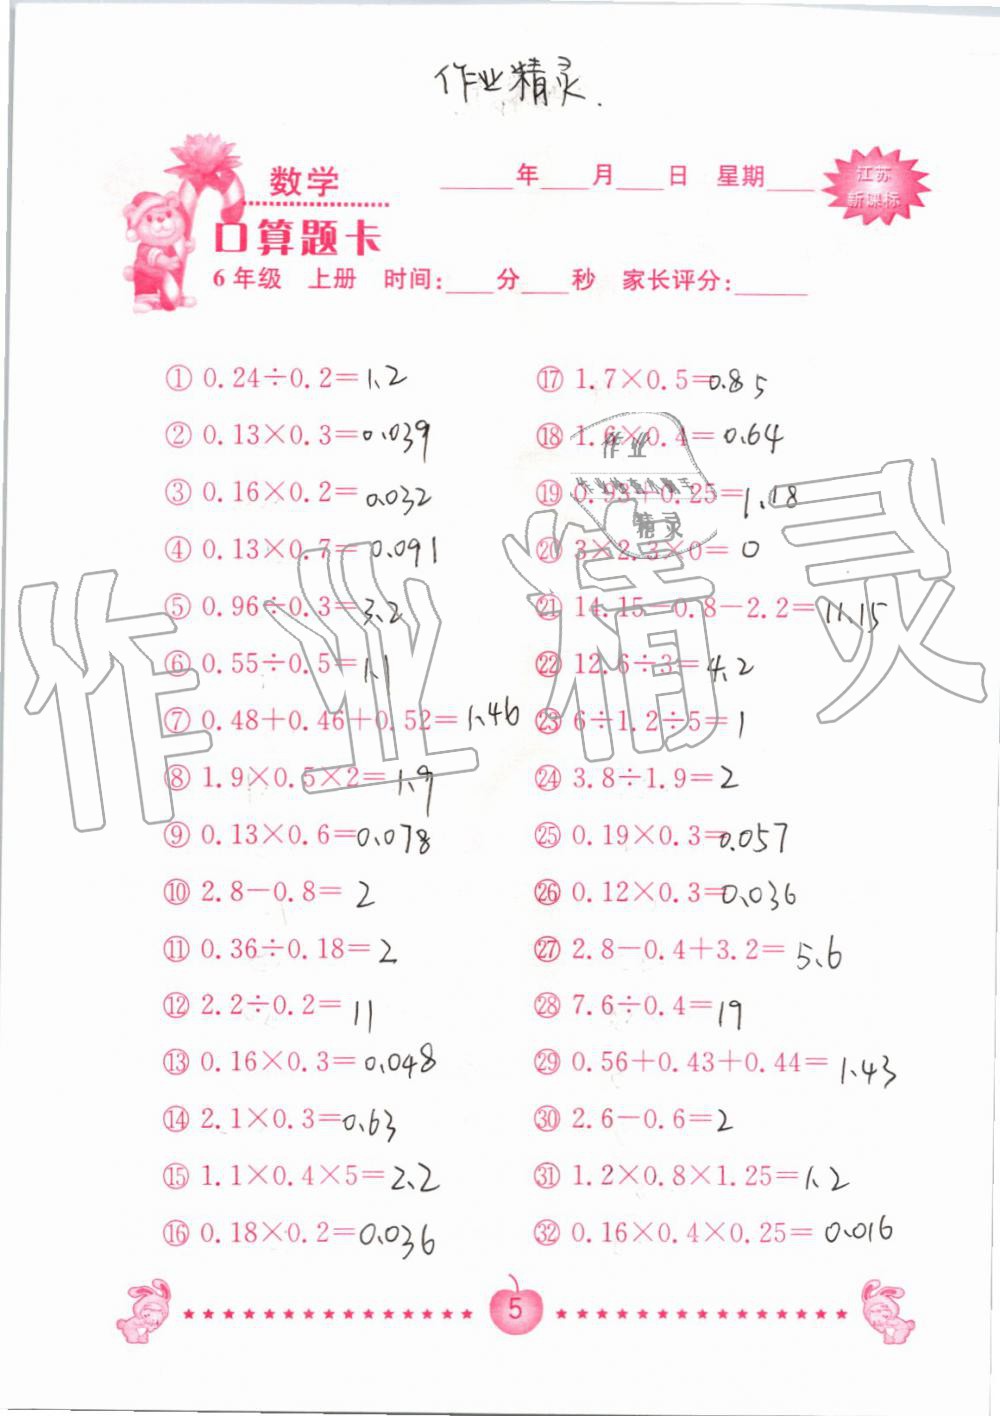 作业精灵.
数学
口算题卡
____年____月____日 星期____
江苏
新课标
6年级 上册 时间:____分____秒 家长评分:______
① 0.24÷0.2=1.2
② 0.13×0.3=0.039
③ 0.16×0.2=0.032
④ 0.13×0.7=0.091
⑤ 0.96÷0.3=3.2
⑥ 0.55÷0.5=1.1
⑦ 0.48+0.46+0.52=1.46
⑧ 1.9×0.5×2=1.9
⑨ 0.13×0.6=0.078
⑩ 2.8-0.8=2
⑪ 0.36÷0.18=2
⑫ 2.2÷0.2=11
⑬ 0.16×0.3=0.048
⑭ 2.1×0.3=0.63
⑮ 1.1×0.4×5=2.2
⑯ 0.18×0.2=0.036
⑰ 1.7×0.5=0.85
⑱ 1.6×0.4=0.64
⑲ 0.93+0.25=1.18
⑳ 3×2.3×0=0
㉑ 14.15-0.8-2.2=11.15
㉒ 12.6÷3=4.2
㉓ 6÷1.2÷5=1
㉔ 3.8÷1.9=2
㉕ 0.19×0.3=0.057
㉖ 0.12×0.3=0.036
㉗ 2.8-0.4+3.2=5.6
㉘ 7.6÷0.4=19
㉙ 0.56+0.43+0.44=1.43
㉚ 2.6-0.6=2
㉛ 1.2×0.8×1.25=1.2
㉜ 0.16×0.4×0.25=0.016
5
作业
作业检查小助手
精灵
作业精灵